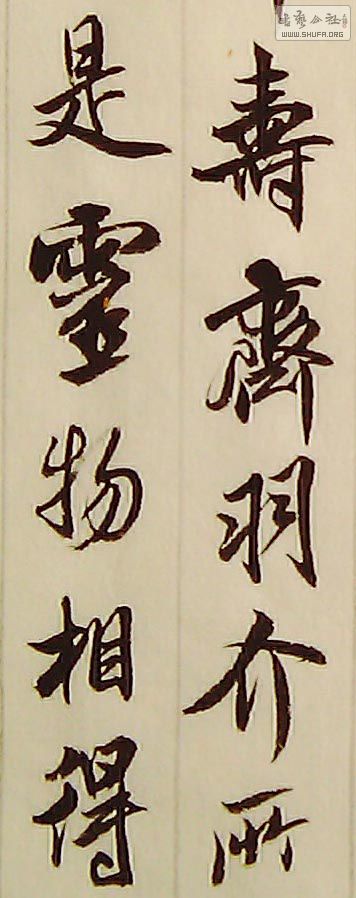 壽齊羽介所
是靈物相得
WWW.SHUFA.ORG